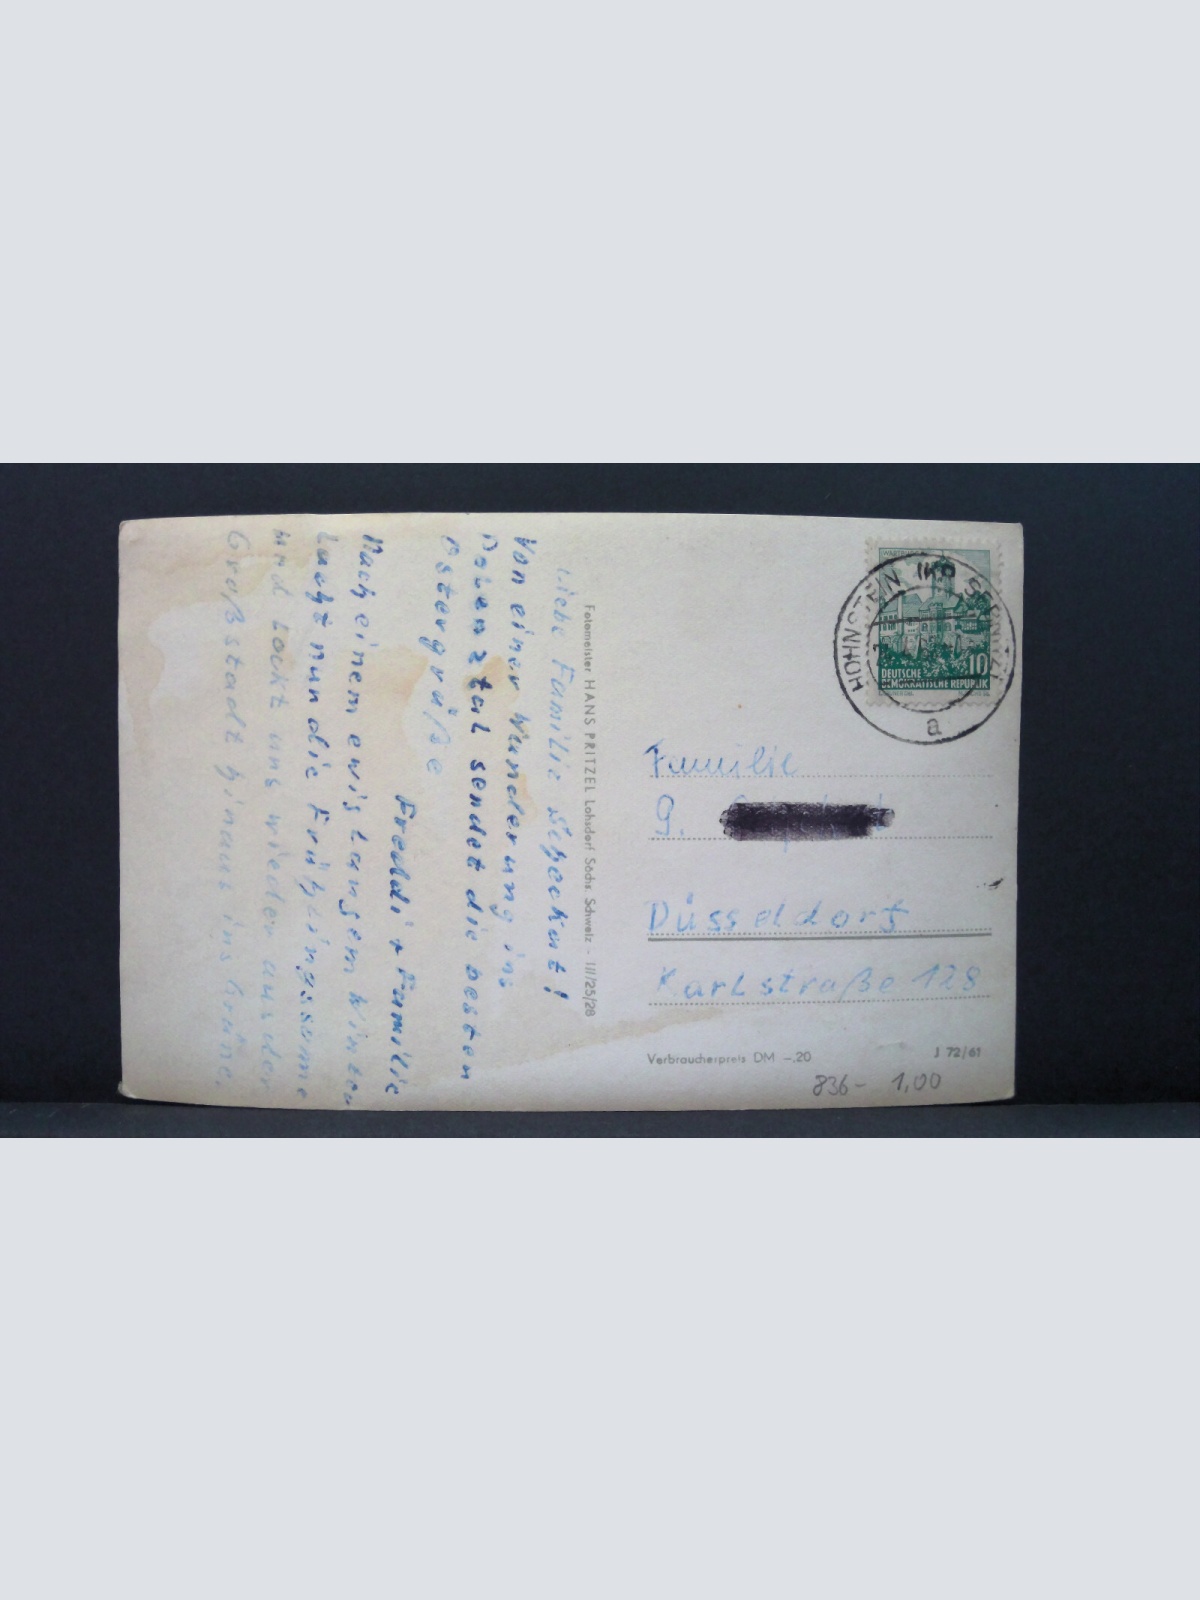 Liebe Familie Scheckat!
Von einer Wanderung ins
Polenztal sendet die besten
Ostergrüße
Freddi + Familie
Nach einem ewig langem Winter
Lacht nun die Frühlingssonne
und Lockt uns wieder aus der
Großstadt hinaus ins Grüne.
Fotomeister HANS PRITZEL Lohsdorf Sächs. Schweiz - III/25/28
HOHNSTEIN (KR SEBNITZ)
a
10
DEUTSCHE
DEMOKRATISCHE REPUBLIK
Familie
G.
Düsseldorf
Karlstraße 128
Verbraucherpreis DM –.20
J 72/61
836- 1,00